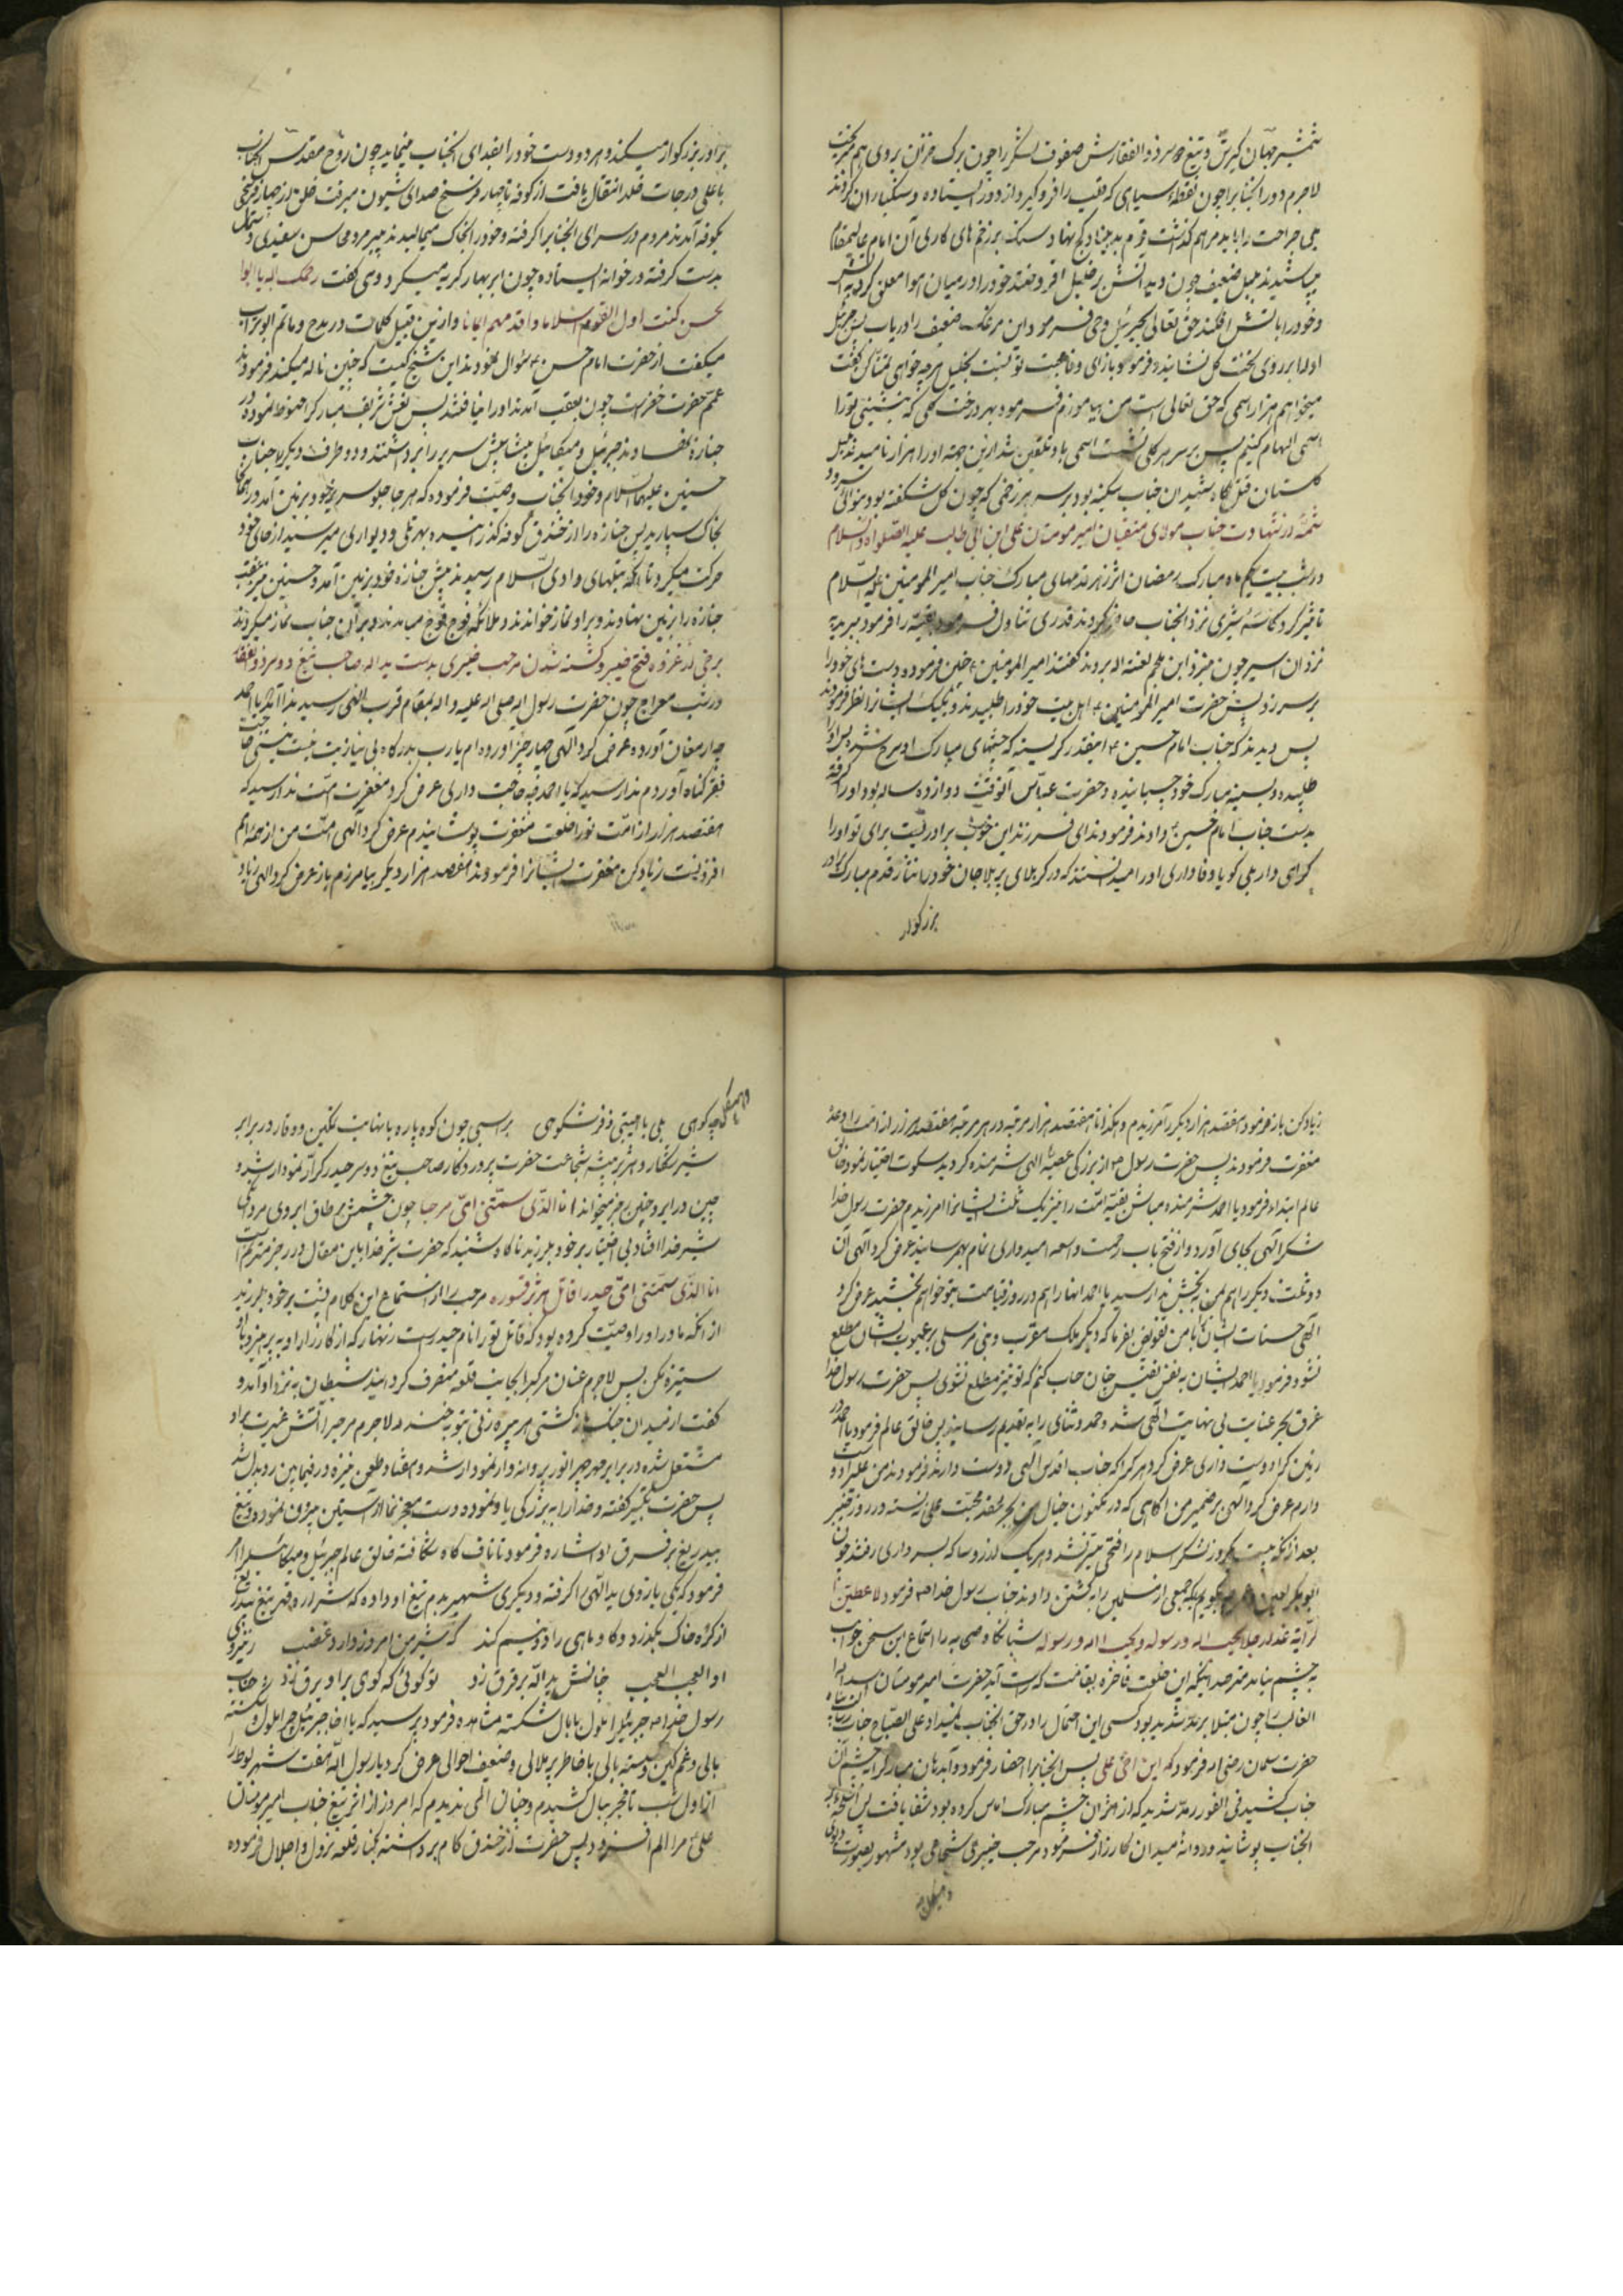 شمشیر جهان کیرش و تیغ دو سر ذوالفقارش صفوف لشکر را چون برک خزان بروی هم میریخت
لاجرم دور انجناب را چون نقطهٔ سیاهی که قلب را فرو کیرد از دور ایستاده و سنکباران کردند
بلی جراحت را باید مرهم کذاشت قوم بد بنیاد کج نهاد سنک بر زخم های کاری آن امام عالیمقام
میپاشیدند بلبل ضعیف چون دید آتش بر خلیل افروختند خود را در میان هوا معلق کردید
و خود را باتش افکند حق تعالی بجبرئیل وحی فرمود این مرغک ضعیف را دریاب پس جبرئیل
او را بر روی تخت کل نشانید و فرمود بازای وفا و محبت تو نسبت بخلیل هر چه خواهی تمنا کن کفت
میخواهم هزار اسمی که حق تعالی است من بیاموزم فرمود بهر درخت کلی که بنشینی تو را
اسمی الهام کنیم پس بر سر هر کلی نشست اسمی باو تلقین شد ازین جهته او را هزار نامیدند بلبل
کلستان قتل کاه شهیدان جناب سکینه بود بر سر هر زخمی که چون کل شکفته بود بنوائی سرود
تتمه در شهادت جناب مولای متقیان امیر مومنان علی ابن ابی طالب علیه الصلواة والسلام
در شب بیست یکم ماه مبارک رمضان اثر زهر بدنهای مبارک جناب امیر المومنین علیه السلام
تاثیر کرد کاسهٔ شیری نزد انجناب حاضر کردند قدری تناول فرمود بقیه را فرمود ببرید
نزد ان اسیر چون بنزد ابن ملجم لعنة اله بردند کفتند امیر المومنین چنین فرموده دست های خود را
بر سر زد پس حضرت امیر المومنین اهل بیت خود را طلبیدند و بیک یک ایشان نظر فرمودند
پس دیدند که جناب امام حسین اینقدر کریسته که چشمهای مبارک او سرخ شده پس او را
طلبیده و بسینه مبارک خود چسبانیده و حضرت عباس آنوقت دوازده ساله بود او را کرفته
بدست جناب امام حسین دادند فرمودند ای فرزند این خوب برادریست برای تو او را
کرامی دار بلی کویا وفاداری او را میدانستند که در کربلای پر بلا جان خود را نثار قدم مبارک برادر
بزرکوار
برادر بزرکوار میکند و هر دو دست خود را بفدای انجناب مینماید چون روح مقدس انجناب
باعلی درجات خلد انتقال یافت از کوفه تا چهار فرسخ صدای شیون میرفت خلق از چهار فرسخی
بکوفه آمدند مردم در سرای انجناب را کرفته و خود را بخاک میمالیدند پیر مرد محاسن سفیدی
بدست کرفته در خوانه ایستاده چون ابر بهار کریه میکرد و می کفت رحمک اله یا ابا
لحسن کنت اول القوم اسلاما و اقدمهم ایمانا و ازین قبیل کلمات در مدح و ماتم ابو تراب
میکفت از حضرت امام حسن سوال نمودند این شیخ کیست که چنین ناله میکند فرمودند
عمم حضرت خضر است چون بعقب آمدند او را نیافتند پس نعش شریف مبارک را حنوط نموده در
جنازه نهادند جبرئیل و میکائیل پیشاپیش سریر را برداشتند و دو طرف دیکر را جناب
حسنین علیهما السلام و خود انجناب وصیت فرموده که هر جا جلو سریر خود بر زمین آمد در آنجا
بخاک سپارید پس جنازه را از خندق کوفه کذرانیده بهر تلی و دیواری میرسید از جای خود
حرکت میکرد تا انکه بمنتهای وادی السلام رسیدند پیش جنازه خود بر زمین آمد و حسنین نیز عقب
جنازه را بزمین نهادند و براو نماز خواندند و ملائکه فوج فوج میامدند و بر آن جناب نماز میکردند
برخی از غزوه فتح خیبر و کشته شدن مرحب خیبری بدست ید اله صاحب تیغ دو سر ذوالفقار
در شب معراج چون حضرت رسول اله صلی اله علیه و اله بمقام قرب الهی رسید ندا آمد یا احمد
چه ارمغان آورده عرض کرد الهی چهار چیز اورده ام یارب بدرکاه بی نیازیت نیست نیستی حاجت
فقر کناه آوردم ندا رسید که یا احمد چه حاجت داری عرض کرد مغفرت امت ندا رسید که
هفتصد هزار از امت تو را خلعت مغفرت پوشانیدم عرض کرد الهی امت من از همهٔ امم
افزونست زیاد کن مغفرت ایشانرا فرمودند هفتصد هزار دیکر بیامرزم باز عرض کرد الهی زیاد
زیاد کن باز فرمود هفتصد هزار دیکر را آمرزیدم و هکذا تا هفتصد هزار مرتبه در هر مرتبه هفتصد هزار از امت را وعده
مغفرت فرمودند پس حضرت رسول از بزرکی عطیه الهی شرمنده کردید سکوت اختیار نمود خالق
عالم ابتدا فرمود یا احمد شرمنده مباش بقیه امت را نیز یک ثلث ایشانرا امرزیدم حضرت رسول خدا
شکر الهی بجای آورد و از فتح باب رحمت واسعه امیدواری تمام بهم رسانید عرض کرد الهی ان
دو ثلث دیکر را هم بمن ببخش ندا رسید یا احمد انها را هم در روز قیامت بتو خواهم بخشید عرض کرد
الهی حسنات ایشان را با من تفویض بفرما که دیکر ملک مقرب و نبی مرسلی بر عیوب ایشان مطلع
نشود فرمود یا احمد ایشان به نفس نفیس چنان حساب کنم که تو نیز مطلع نشوی پس حضرت رسول خدا
غرق بحر عنایت بی نهایت الهی شد و حمد و ثنای را به تقدیم رسانید پس خالق عالم فرمود یا احمد در
زمین کرا دوست داری عرض کرد هر کرا که جناب اقدس الهی دوست دارد فرمودند من علی را دوست
دارم عرض کرد الهی بر ضمیر من اکاهی که در مکنون خیال من بجز عقد محبت علی نبسته در روز خیبر
بعد از انکه بیست یکروز لشکر اسلام را فتحی میسر نشد و هر یک از روسا که بسرداری رفتند چون
ابو بکر لعین و عمر میکویم که جمعی از مسلمین را به کشتن دادند جناب رسول خدا فرمود لاعطین
الرایة غدا رجلا یحب اله و رسوله و یحبه اله و رسوله شبانکاه صحابه را استماع این سخن خواب
به چشم نیامد مترصد اینکه این خلعت فاخره بقامت که راست آید حضرت امیر مومنان اسد اله
الغالب را چون مبتلا برمد شدید بود کسی این احتمال را در حق انجناب نمیداد علی الصباح جناب رسالت پناه
حضرت سلمان رضی اله فرمود که این اخی علی پس انجناب را احضار فرمود و آب دهان مبارک را به چشم آن
جناب کشید فی الفور رمد شدید که از اثر ان چشم مبارک اماس کرده بود شفا یافت پس اسلحه بر
انجناب پوشانید و روانهٔ میدان کارزار فرمود مرحب خیبری شجاعی بود مشهور بصورت
چه کوهی بلی با هیبتی و فر شکوهی بر اسبی چون کوه پاره با نهایت تمکین و وقار در برابر
شیر شکار و هژبر بیشه شجاعت حضرت پروردکار صاحب تیغ دو سر حیدر کرار نمودار شد و
چین در ابرو چنین رجز میخواند انا الذی سمتنی امی مرحبا چون چشمش بر طاق ابروی مردانکی
شیر خدا افتاد بی اختیار بر خود بلرزید ناکاه شنید که حضرت شیر خدا باین مقال در رجز مترنم است
انا الذی سمتنی امی حیدرا قاتل هژبر قسوره مرحب را از استماع این کلام تب بر خود بلرزید
از انکه مادر او را وصیت کرده بود که قاتل تو را نام حیدر است زنهار که از کارزار او بپرهیز و با او
ستیزه مکن پس لاجرم عنان مرکب را بجانب قلعه منصرف کردانید شیطان به نزد او آمد و
کفت از میدان جنک باز کشتی هر پیره زنی بتو بخندد لاجرم مرحب را آتش غیرت براو
مشتعل شده در برابر مهر چهر انور پروانه وار نمودار شد و هفتاد طعن نیزه در فیما بین رد و بدل شد
پس حضرت تکبیر کفته و خدا را به بزرکی یاد نموده دست معجز نما از آستین بیرون نموده و تیغ
بیدریغ بر فرق او اشاره فرمود تا ناف کاه شکافته خالق عالم جبرئیل و میکائیل را امر
فرمود که یکی بازوی ید الهی را کرفته و دیکری شهپر بدم تیغ او داده که شراره قهر تیغ حیدر
از کرهٔ خاک بکذرد و کاو ماهی را دو نیم کند که شیر من امروز دارد غضب
او العجب العجب چنانش ید الله بر فرق زد تو کوئی که کوی برابر برق زد جناب
رسول خدا جبرئیل را ملول با بال شکسته مشاهده فرمود پرسید که یا اخا جبرئیل چرا ملول و شکسته
بالی و غمکین و بسته بالی با خاطر پر ملالی و ضعیف احوالی عرض کرد یا رسول الله هفت شهر لوط را
از اول شب تا فجر ببال کشیدم و چنان المی ندیدم که امروز از اثر تیغ جناب امیر مومنان
علی مرا الم افزود پس حضرت از خندق کام برداشته بکنار قلعه نزول و اجلال فرموده